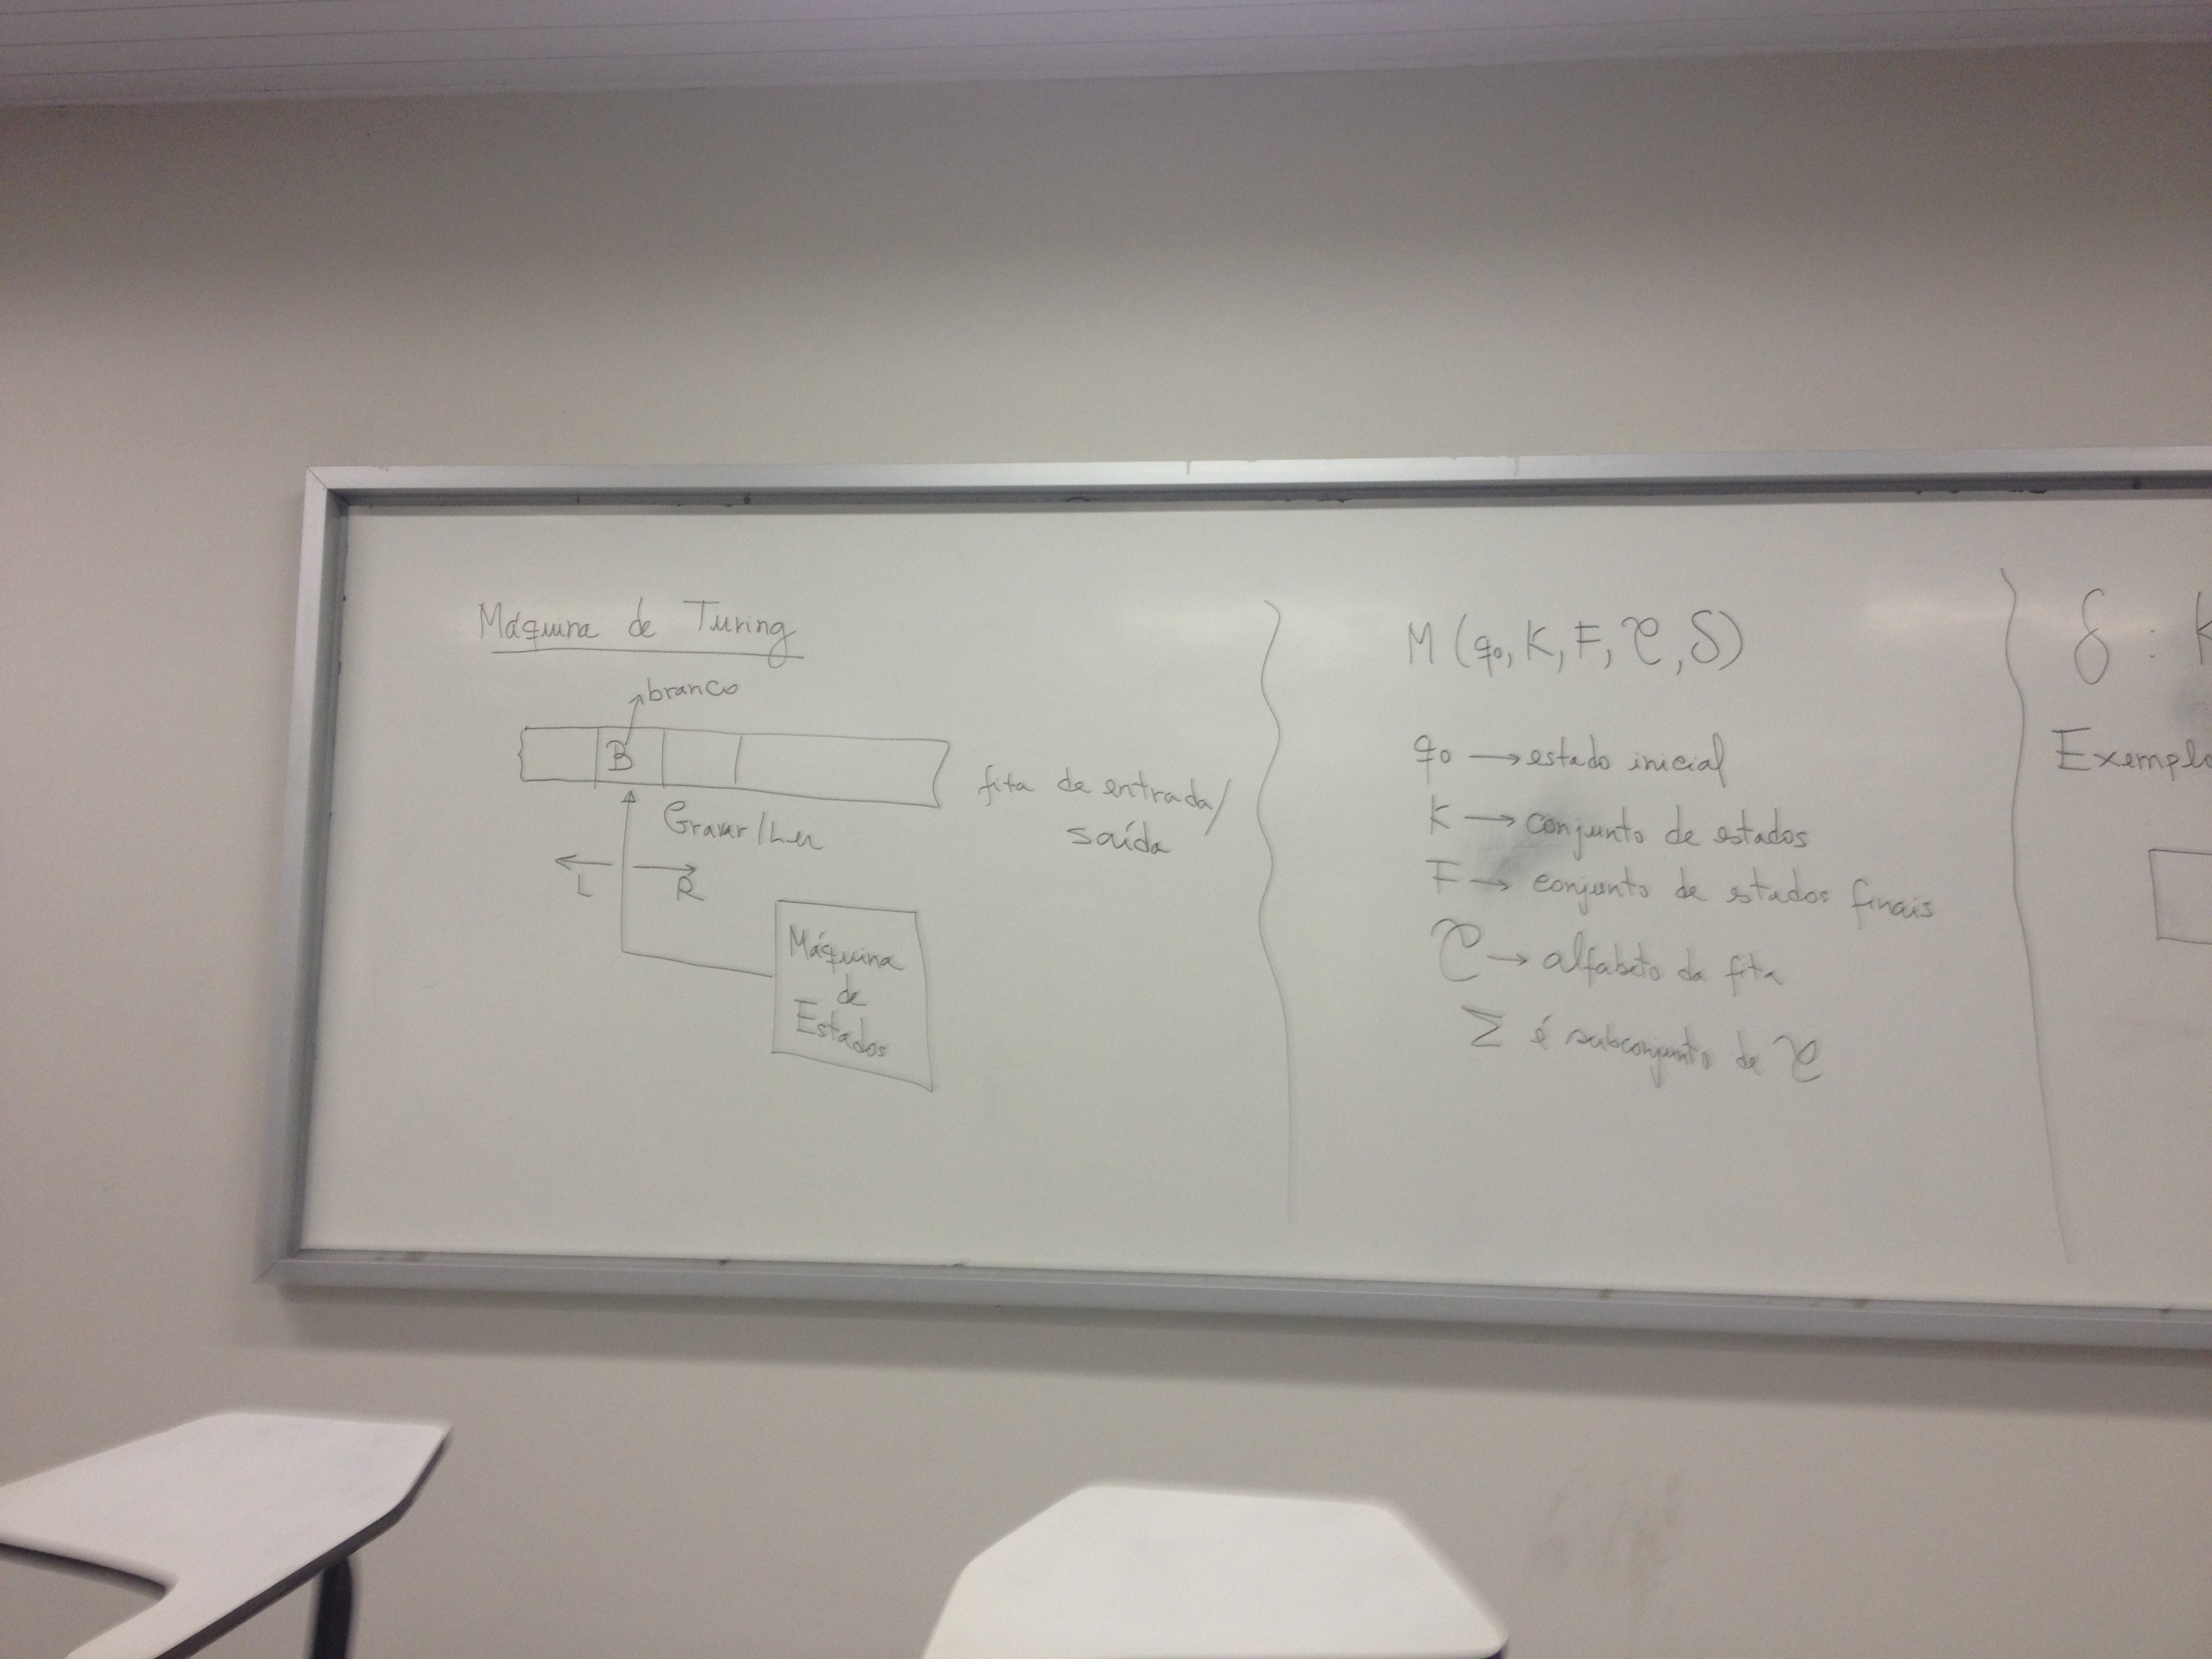 Máquina de Turing
branco
B
fita de entrada/
saída
Gravar/Ler
L R
Máquina
de
Estados
M (q0, K, F, 𝒞, δ)
q0 → estado inicial
K → conjunto de estados
F → conjunto de estados finais
𝒞 → alfabeto da fita
Σ é subconjunto de 𝒞
δ : K
Exemplo